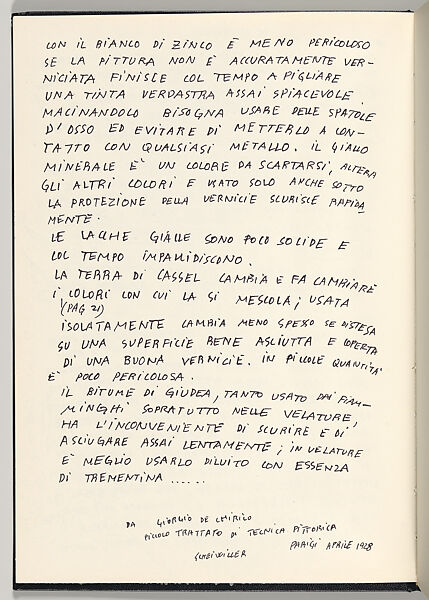 CON IL BIANCO DI ZINCO È MENO PERICOLOSO
SE LA PITTURA NON È ACCURATAMENTE VER-
NICIATA FINISCE COL TEMPO A PIGLIARE
UNA TINTA VERDASTRA ASSAI SPIACEVOLE.
MACINANDOLO BISOGNA USARE DELLE SPATOLE
D'OSSO ED EVITARE DI METTERLO A CON-
TATTO CON QUALSIASI METALLO. IL GIALLO
MINERALE È UN COLORE DA SCARTARSI, ALTERA
GLI ALTRI COLORI E USATO SOLO ANCHE SOTTO
LA PROTEZIONE DELLA VERNICE SCURISCE RAPIDA
MENTE.
LE LACCHE GIALLE SONO POCO SOLIDE E
COL TEMPO IMPALLIDISCONO.
LA TERRA DI CASSEL CAMBIA E FA CAMBIARE
I COLORI CON CUI LA SI MESCOLA; USATA
(PAG 21)
ISOLATAMENTE CAMBIA MENO SPESSO SE DISTESA
SU UNA SUPERFICIE BENE ASCIUTTA E COPERTA
DI UNA BUONA VERNICE. IN PICCOLE QUANTITA'
È POCO PERICOLOSA.
IL BITUME DI GIUDEA, TANTO USATO DAI FIAM-
MINGHI SOPRATUTTO NELLE VELATURE,
HA L'INCONVENIENTE DI SCURIRE E DI
ASCIUGARE ASSAI LENTAMENTE; IN VELATURE
È MEGLIO USARLO DILUITO CON ESSENZA
DI TREMENTINA ......
DA GIORGIO DE CHIRICO
PICCOLO TRATTATO DI TECNICA PITTORICA
PARIGI APRILE 1928
SCHEIWILLER